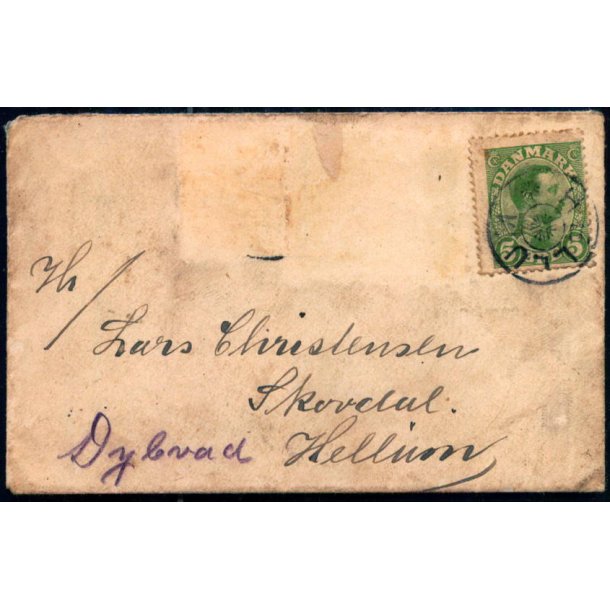 DANMARK
5 5
Hr/
Lars Christensen
Skovdal.
Dybvad Hellum